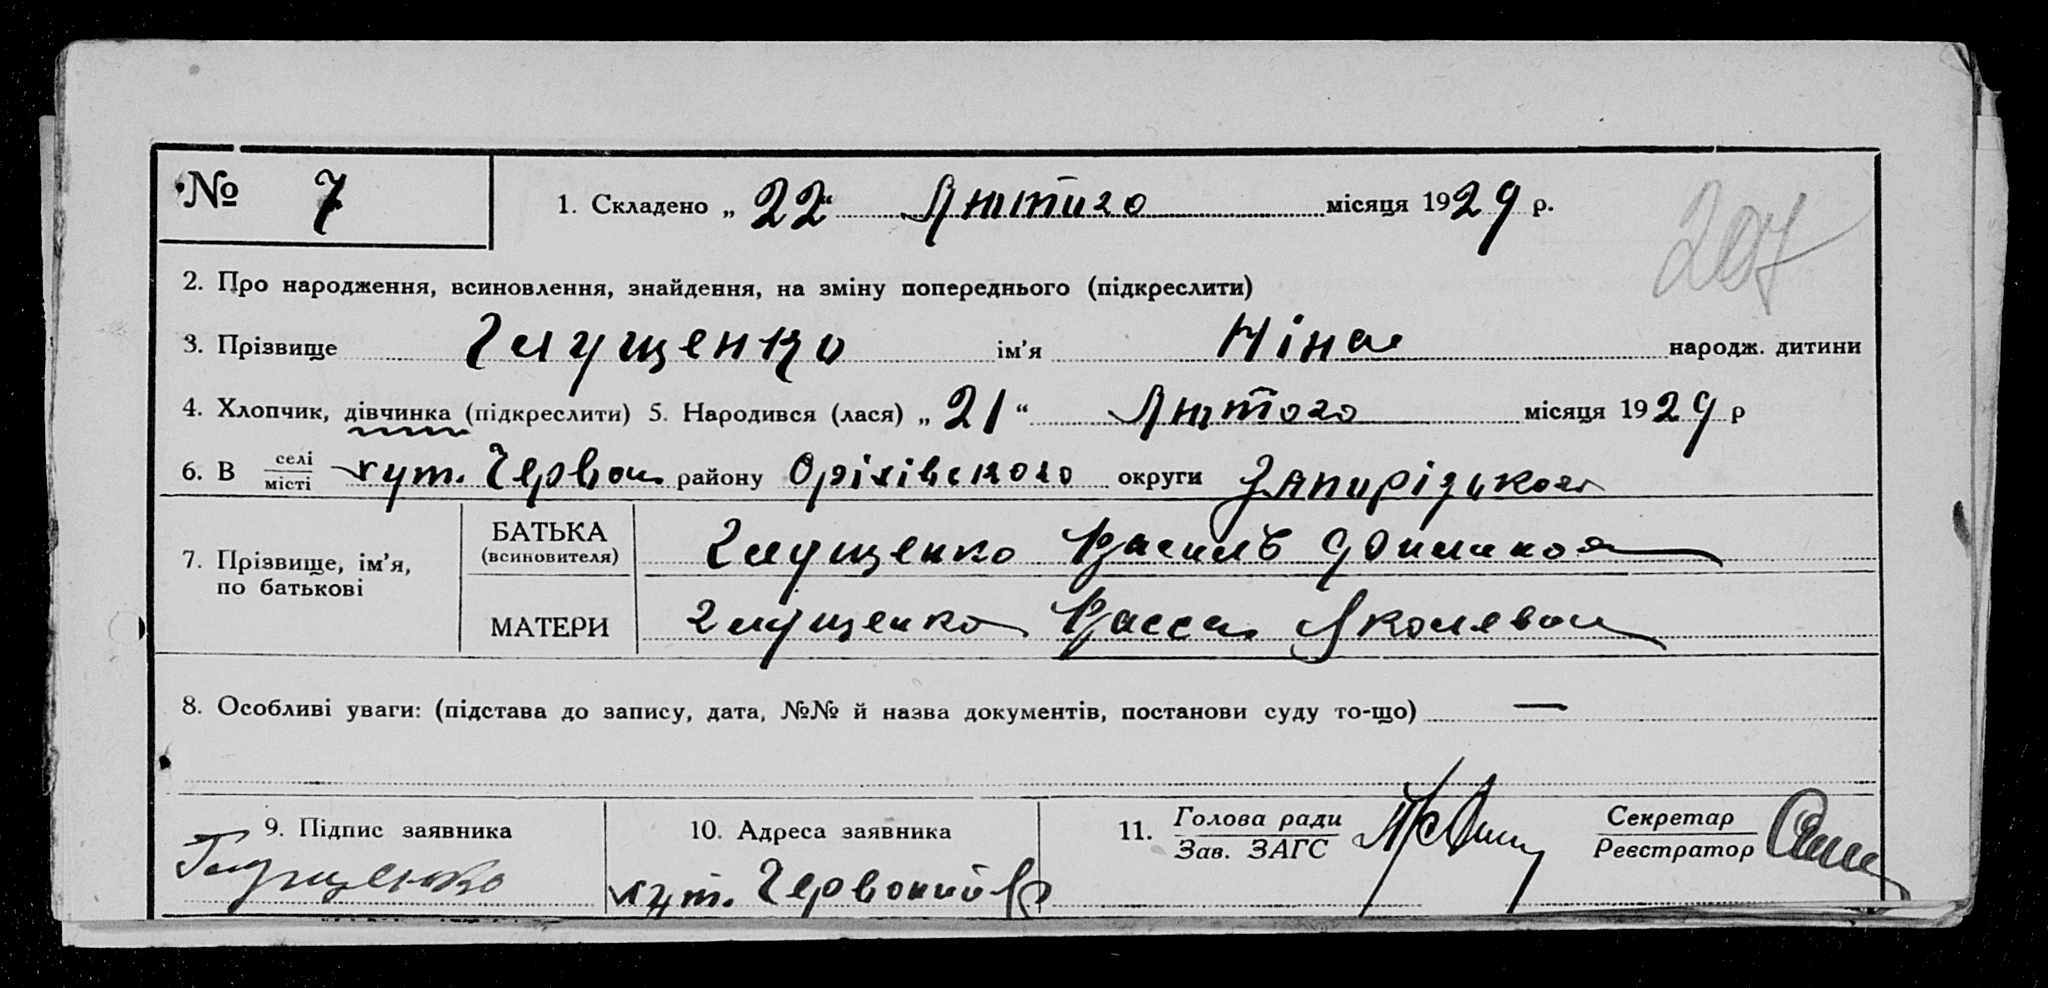 № 7 1. Складено „22“ Лютого місяця 1929 р.
207
2. Про народження, всиновлення, знайдення, на зміну попереднього (підкреслити)
3. Прізвище Глущенко ім'я Ніна народж. дитини
4. Хлопчик, дівчинка (підкреслити) 5. Народився (лася) „21“ Лютого місяця 1929 р
6. В селі/місті хут. Червон. району Оріхівського округи
7. Прізвище, ім'я, по батькові
БАТЬКА (всиновителя) Глущенко Василь
МАТЕРИ Глущенко Васса Яковлевна
8. Особливі уваги: (підстава до запису, дата, №№ й назва документів, постанови суду то-що) —
9. Підпис заявника 10. Адреса заявника 11. Голова ради/Зав. ЗАГС Секретар/Реєстратор
Глущенко хут. Червоний